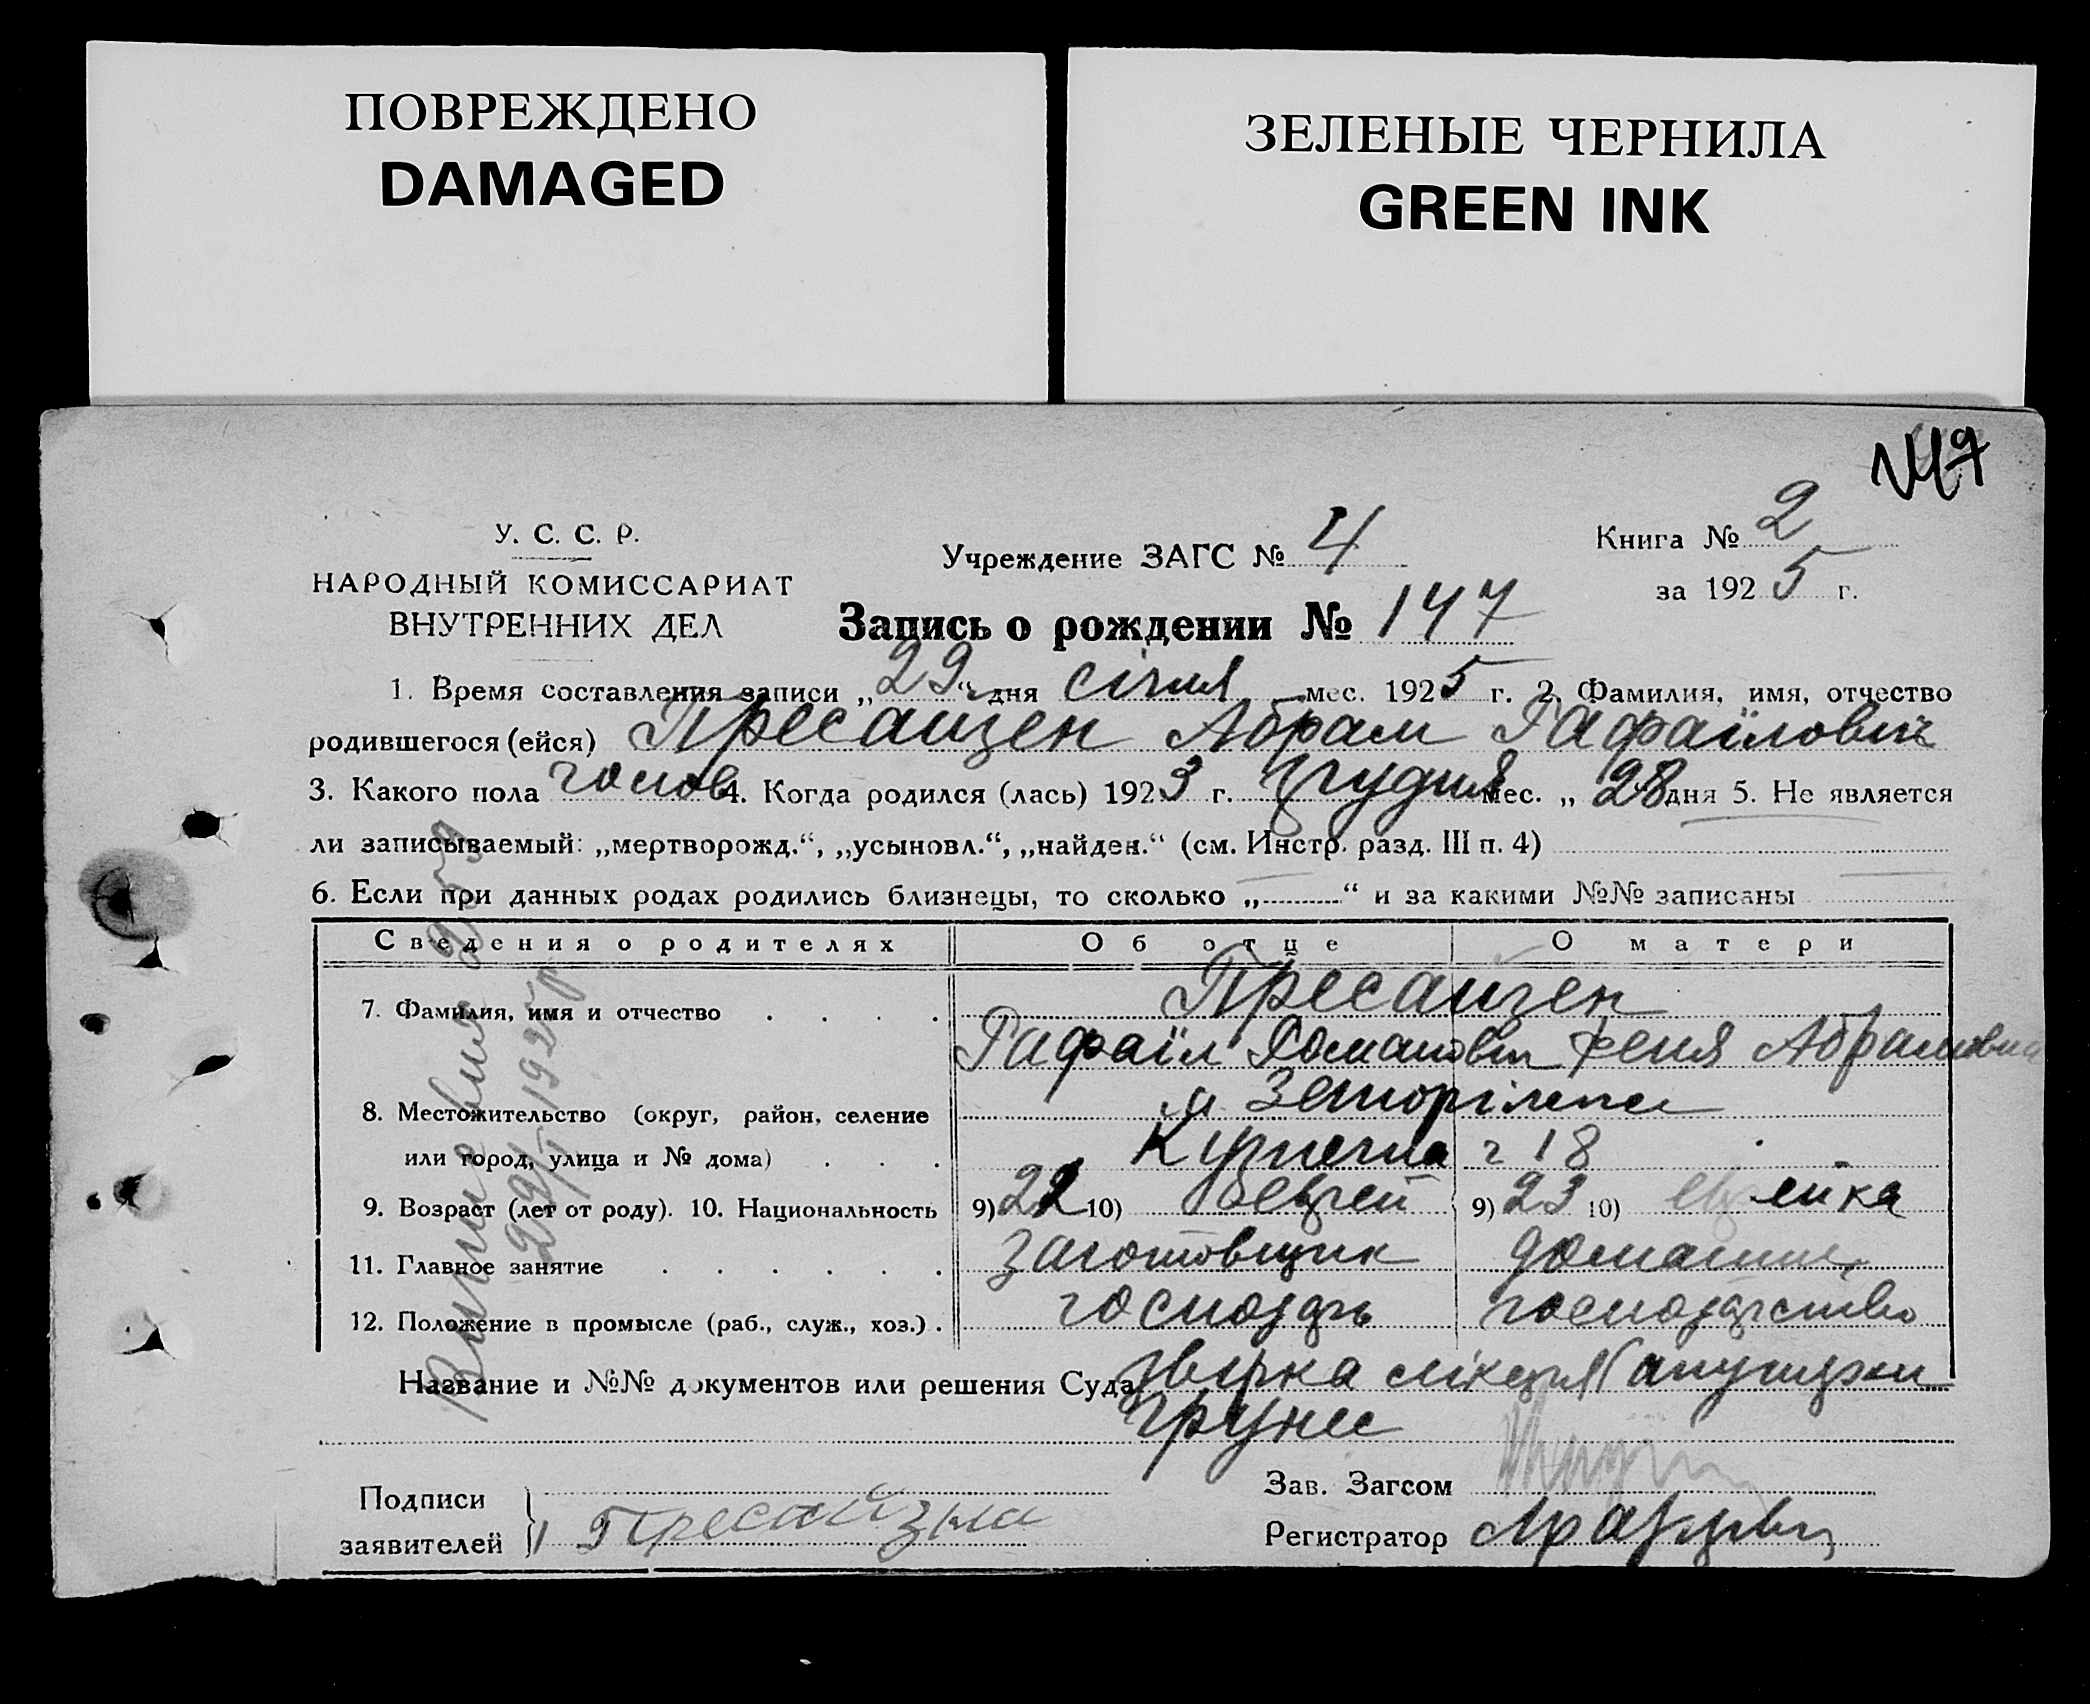 ПОВРЕЖДЕНО
DAMAGED
ЗЕЛЕНЫЕ ЧЕРНИЛА
GREEN INK
У. С. С. Р.
НАРОДНЫЙ КОМИССАРИАТ
ВНУТРЕННИХ ДЕЛ
Учреждение ЗАГС № 4
Книга № 2
за 1925 г.
Запись о рождении № 147
1. Время составления записи „29“ дня січня мес. 1925 г. 2. Фамилия, имя, отчество
родившегося (ейся) Пресайзен Абрам Рафаїлович
3. Какого пола 4. Когда родился (лась) 1923 г. грудня мес. „28 дня 5. Не является
ли записываемый: „мертворожд.“, „усыновл.“, „найден.“ (см. Инстр. разд. III п. 4)
6. Если при данных родах родились близнецы, то сколько „ “ и за какими №№ записаны
Сведения о родителях Об отце О матери
7. Фамилия, имя и отчество Пресайзен
Рафаїл Романович Феня Абрамовна
8. Местожительство (округ, район, селение
или город, улица и № дома) ч 18
9. Возраст (лет от роду). 10. Национальность 9) 22 10) Єврей 9) 23 10) Єврейка
11. Главное занятие заготовщик домашнє
12. Положение в промысле (раб., служ., хоз.) господарь господарство
Название и №№ документов или решения Суда
Подписи
заявителей
Зав. Загсом
Регистратор